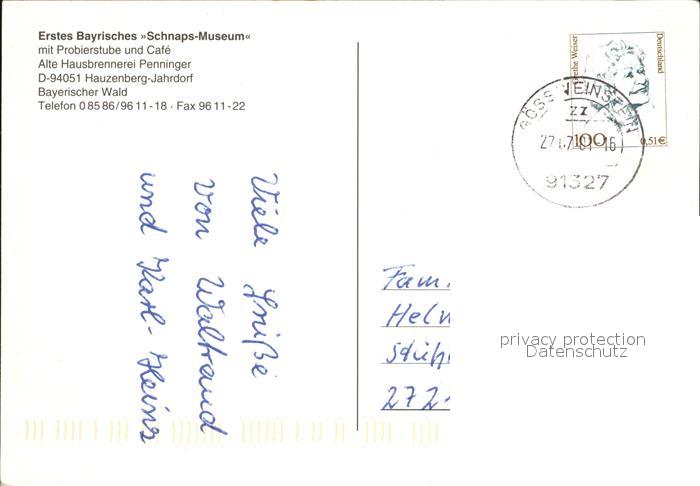 Erstes Bayrisches »Schnaps-Museum«
mit Probierstube und Café
Alte Hausbrennerei Penninger
D-94051 Hauzenberg-Jahrdorf
Bayerischer Wald
Telefon 0 85 86/96 11-18 · Fax 96 11-22
Viele Grüße
von Waltraud
und Karl-Heinz
Deutschland
100
0,51€
GÖSSWEINSTEIN
zz
91327
Fam.
privacy protection
Datenschutz